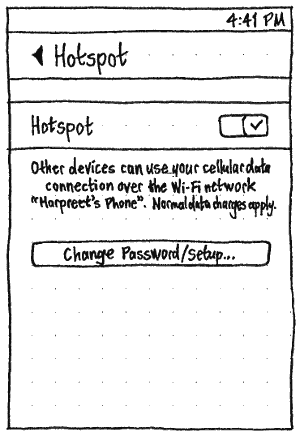 4:41 PM
Hotspot
Hotspot
Other devices can use your cellular data
connection over the Wi-Fi network
"Harpreet's Phone". Normal data charges apply.
Change Password/Setup...